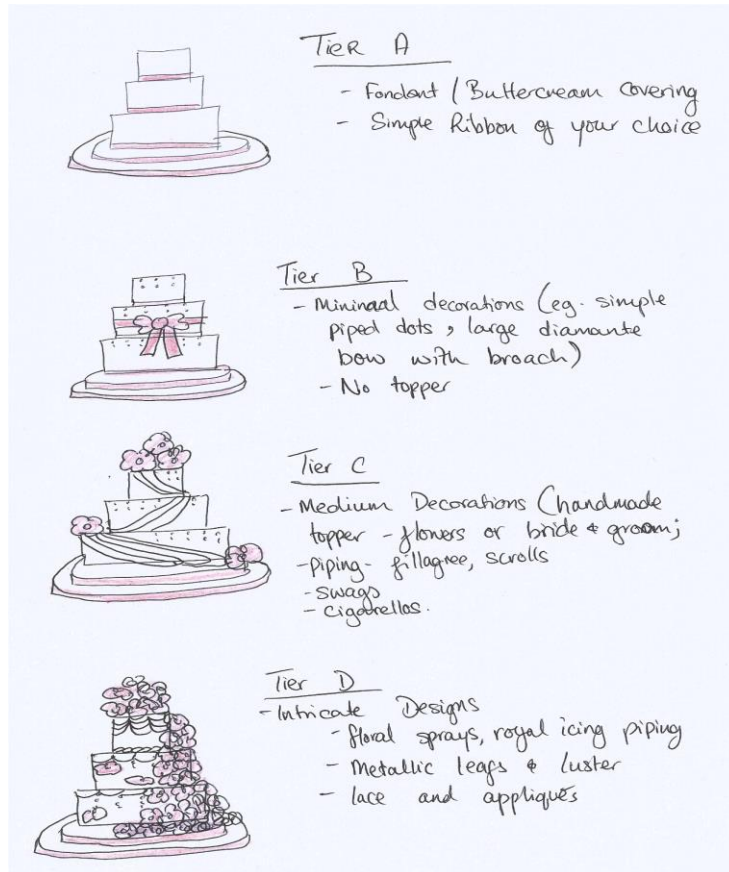 Tier A
- Fondant / Buttercream covering
- Simple Ribbon of your choice
Tier B
- Mininaal decorations (eg. simple
piped dots, large diamante
bow with broach)
- No topper
Tier C
- Medium Decorations (handmade
topper - flowers or bride & groom;
- piping - fillagree, scrolls
- swags
- cigarellos.
Tier D
- Intricate Designs
- floral sprays, royal icing piping
- Metallic leafs & luster
- lace and appliqués